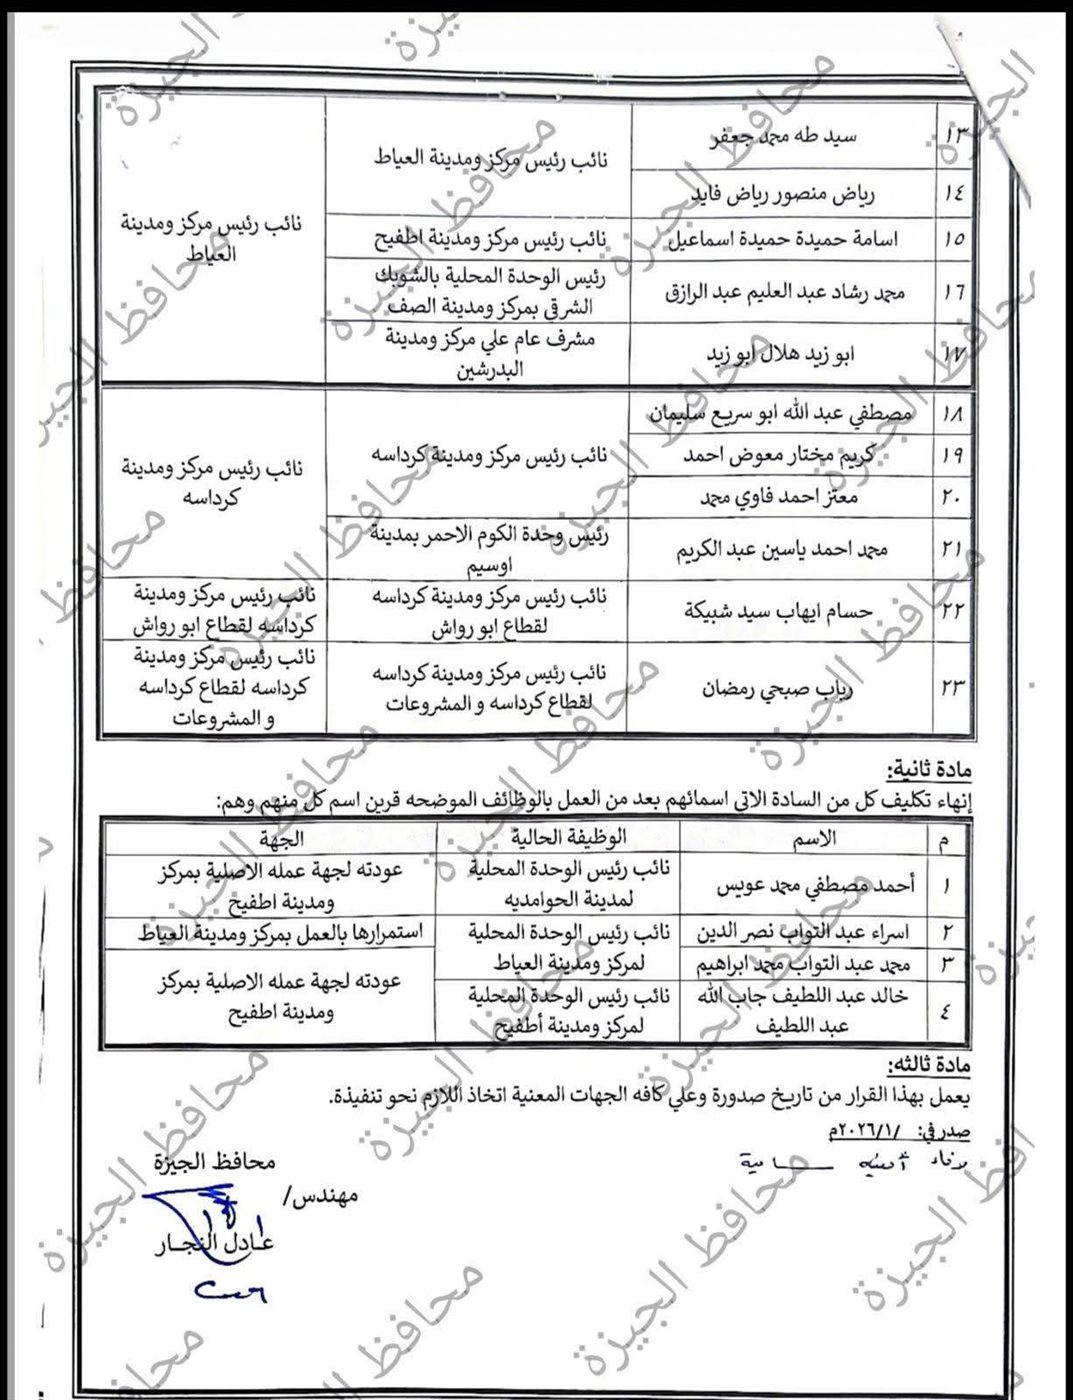 ١٣ سيد طه محمد جعفر نائب رئيس مركز ومدينة العياط نائب رئيس مركز ومدينة العياط
١٤ رياض منصور رياض فايد
١٥ اسامة حميدة حميدة اسماعيل نائب رئيس مركز ومدينة اطفيح
١٦ محمد رشاد عبد العليم عبد الرازق رئيس الوحدة المحلية بالشوبك
الشرقي بمركز ومدينة الصف
١٧ ابو زيد هلال ابو زيد مشرف عام علي مركز ومدينة
البدرشين
١٨ مصطفي عبد الله ابو سريع سليمان نائب رئيس مركز ومدينة كرداسه نائب رئيس مركز ومدينة
كرداسه
١٩ كريم مختار معوض احمد
٢٠ معتز احمد فاوي محمد
٢١ محمد احمد ياسين عبد الكريم رئيس وحدة الكوم الاحمر بمدينة
اوسيم
٢٢ حسام ايهاب سيد شبيكة نائب رئيس مركز ومدينة كرداسه نائب رئيس مركز ومدينة
لقطاع ابو رواش كرداسه لقطاع ابو رواش
٢٣ رباب صبحي رمضان نائب رئيس مركز ومدينة كرداسه نائب رئيس مركز ومدينة
لقطاع كرداسه و المشروعات كرداسه لقطاع كرداسه
و المشروعات
مادة ثانية:
إنهاء تكليف كل من السادة الاتي اسمائهم بعد من العمل بالوظائف الموضحه قرين اسم كل منهم وهم:
م الاسم الوظيفة الحالية الجهة
١ أحمد مصطفي محمد عويس نائب رئيس الوحدة المحلية عودته لجهة عمله الاصلية بمركز
لمدينة الحوامديه ومدينة اطفيح
٢ اسراء عبد التواب نصر الدين نائب رئيس الوحدة المحلية استمرارها بالعمل بمركز ومدينة العياط
٣ محمد عبد التواب محمد ابراهيم لمركز ومدينة العياط عودته لجهة عمله الاصلية بمركز
ومدينة اطفيح
٤ خالد عبد اللطيف جاب الله نائب رئيس الوحدة المحلية
عبد اللطيف لمركز ومدينة أطفيح
مادة ثالثه:
يعمل بهذا القرار من تاريخ صدورة وعلي كافه الجهات المعنية اتخاذ اللازم نحو تنفيذة.
صدر في: /٢٠٢٦/١م
محافظ الجيزة
مهندس/
عادل النجار
محافظ الجيزة